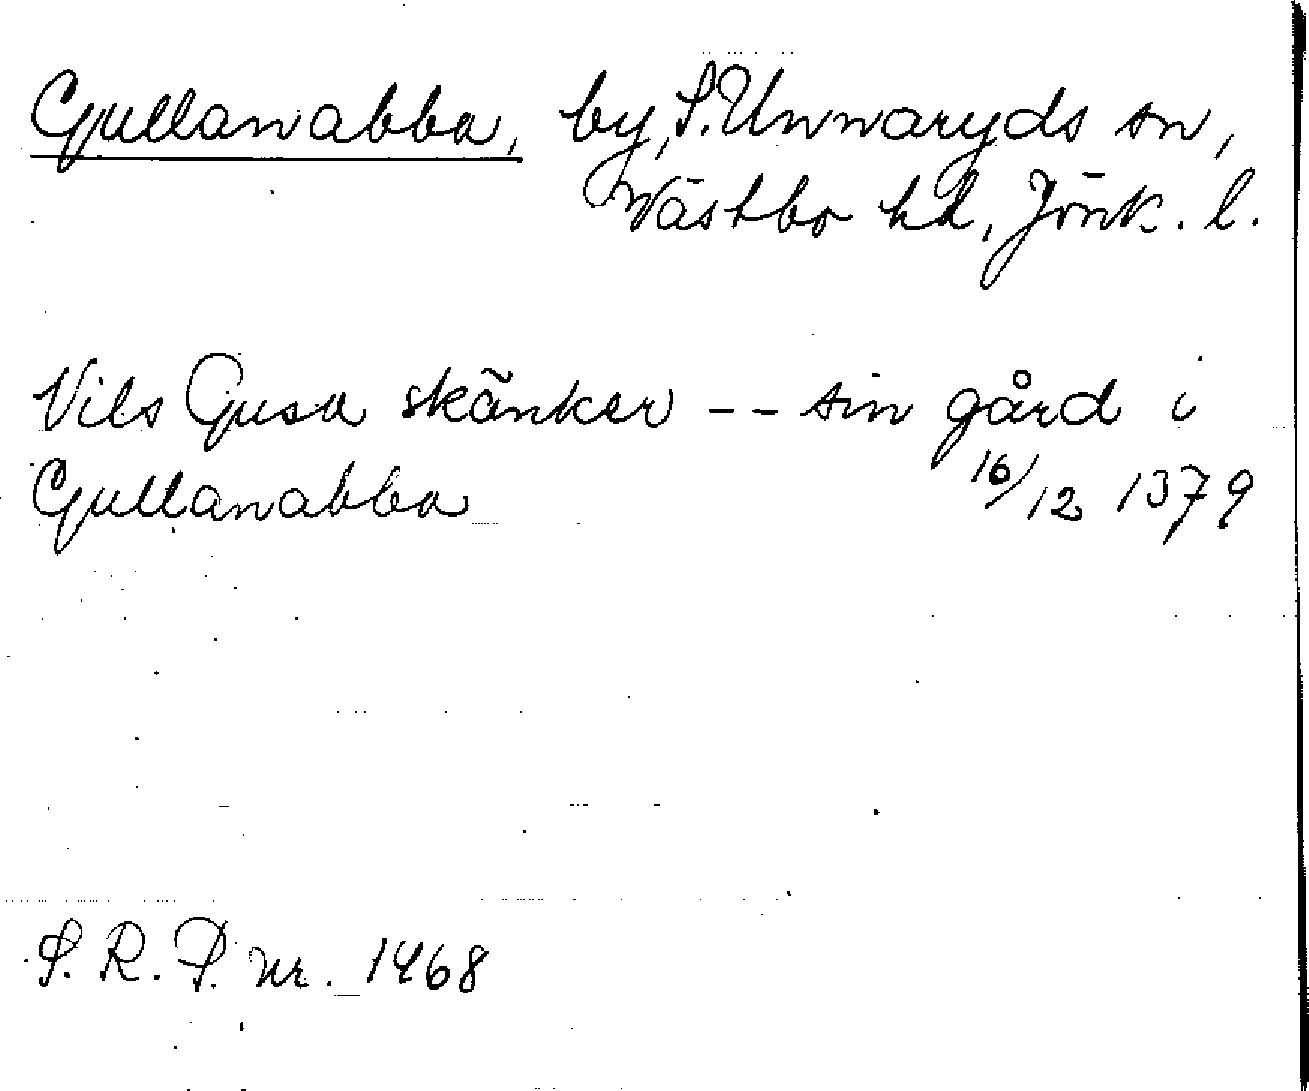 Gullanabba, by, S. Unnaryds sn,
Västbo hd, Jönk. l.
Nils Gusa skänker -- sin gård i
Gullanabba 16/12 1379
S. R. P. nr. 1468